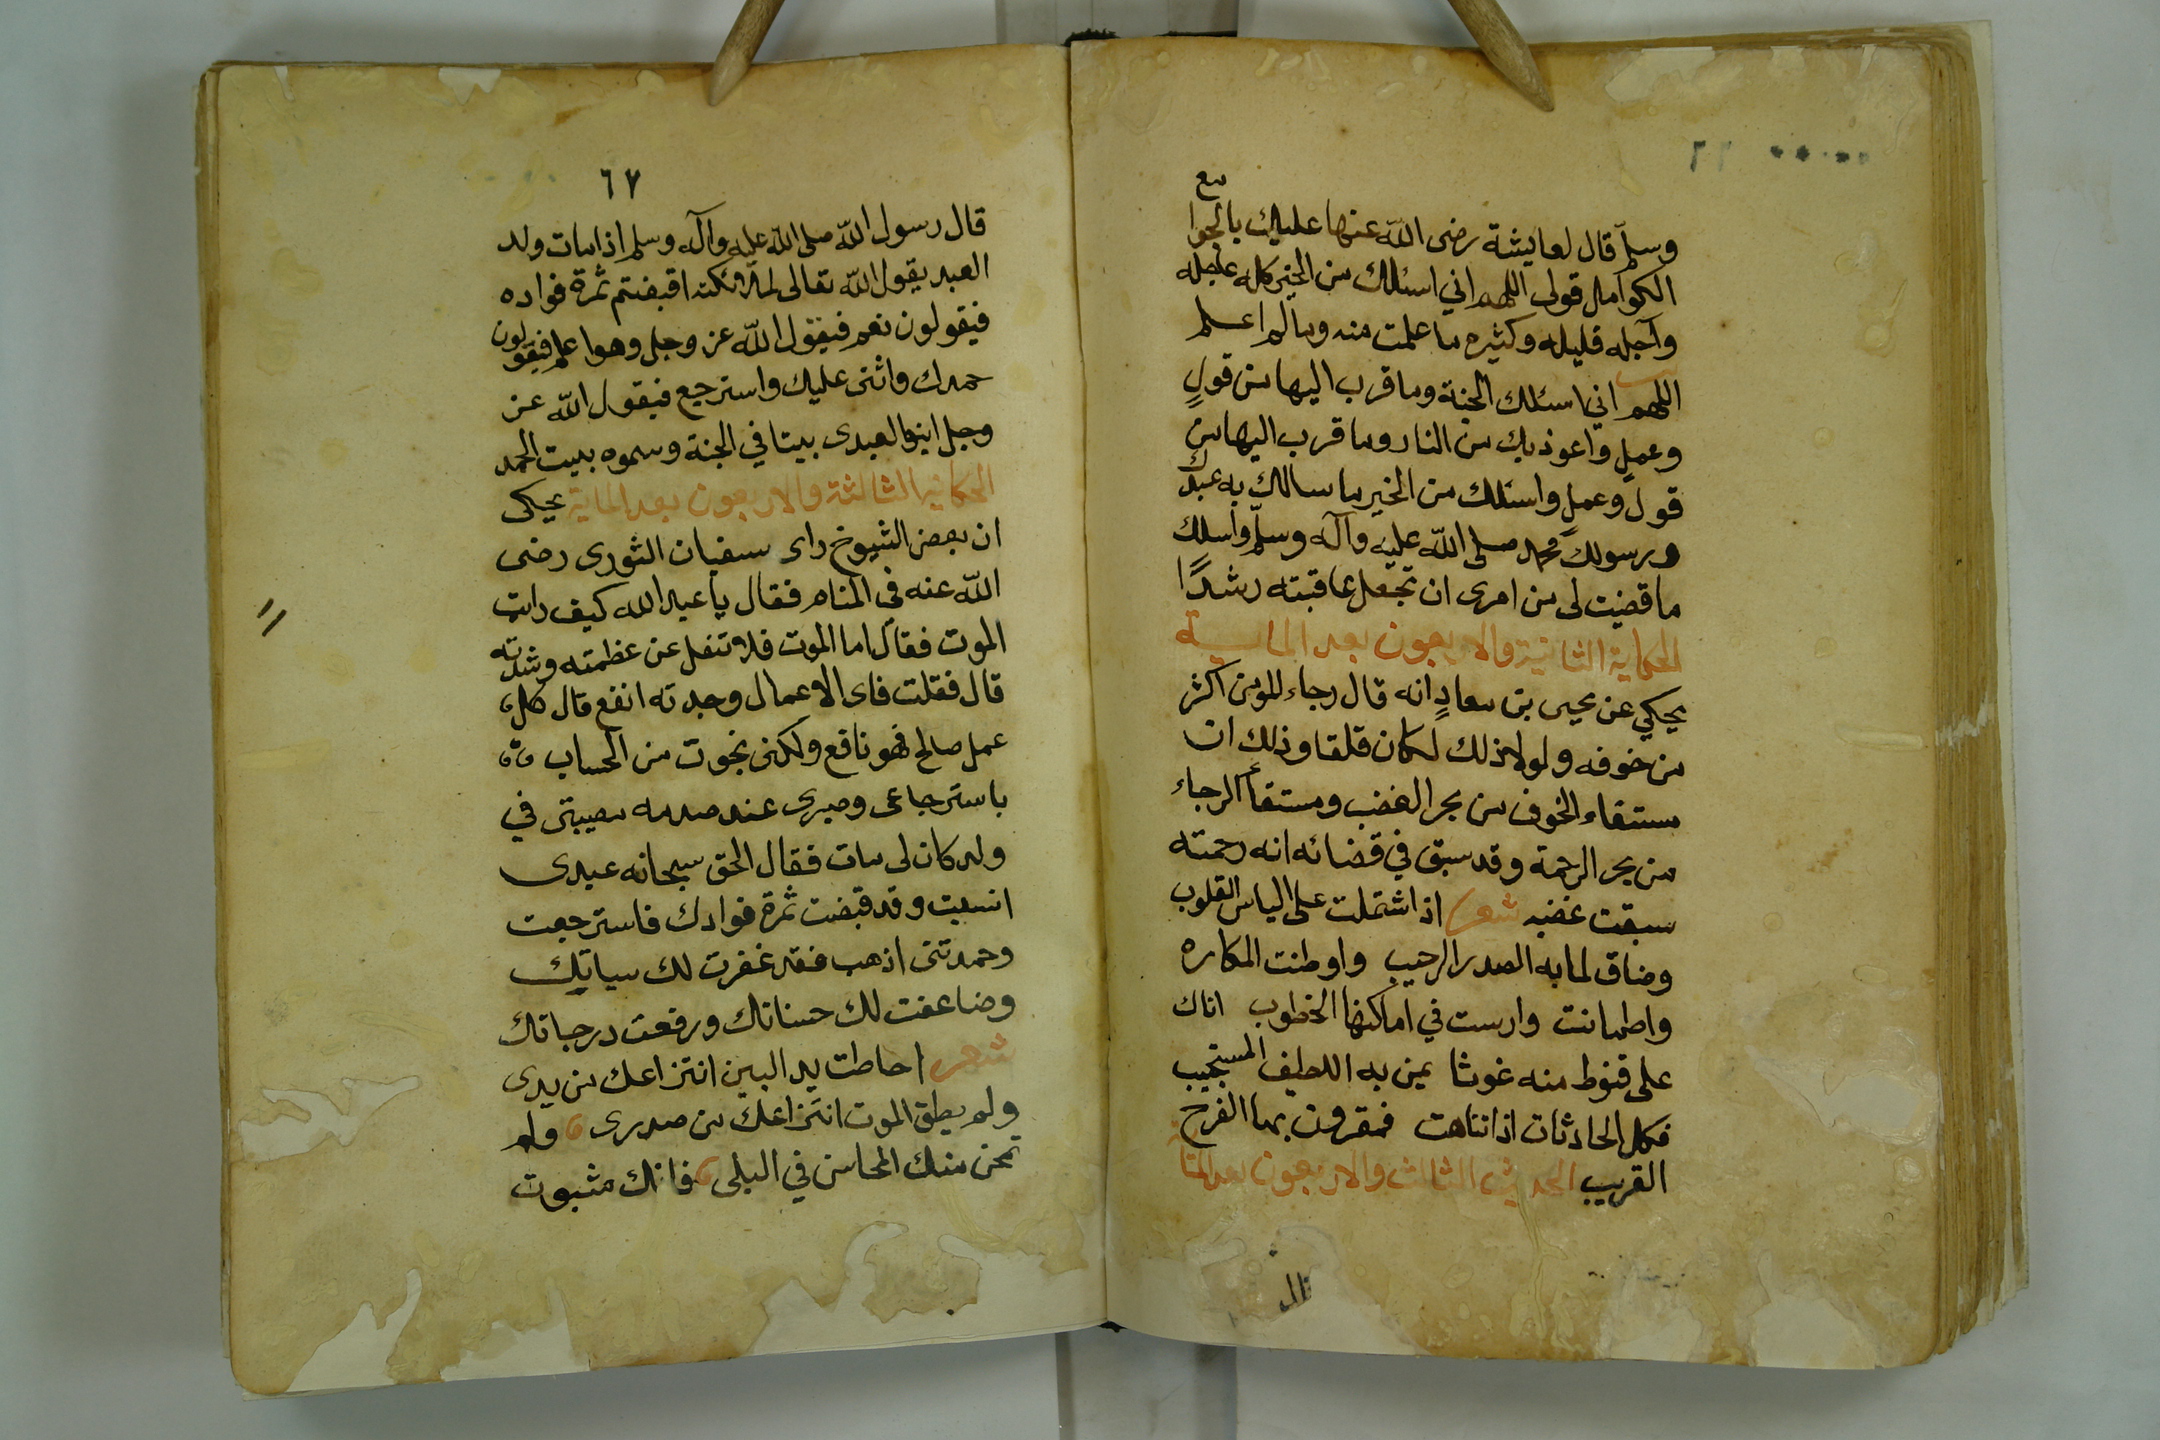 ٦٦
مع
وسلم قال لعايشة رضى الله عنها عليك بالجوا
الكوامل قولى اللهم اني اسئلك من الخير كله عاجله
وآجله قليله وكثيره ما علمت منه وما لم اعلم
اللهم اني اسئلك الجنة وما قرب اليها من قولٍ
وعملٍ واعوذ بك من النار وما قرب اليها من
قول وعملٍ واسئلك من الخير ما سالك به عبدك
ورسولك محمد صلى الله عليه وآله وسلم واسلك
ما قضيت لى من امرى ان تجعل عاقبته رشدًا
الحكاية الثانية والاربعون بعد الماية
يحيكي عن يحيى بن معاد انه قال رجاء المؤمن اكثر
من خوفه ولولا ذلك لكان قلقا وذلك ان
مستقاء الخوف من بحر الغضب ومستقاء الرجاء
من بحر الرحمة وقد سبق في قضائه انه رحمته
سبقت غضبه شعر اذا اشتملت على الياس القلوب
وضاق لما به الصدر الرحيب واوطنت المكاره
واطمانت وارست في اماكنها الخطوب اتاك
على قنوط منه غوثا يمن به اللطيف المستجيب
فكل الحادثات اذا تناهت فمقرون بها الفرج
القريب الحديث الثالث والاربعون بعد المائة
قال
٦٧
قال رسول الله صلى الله عليه وآله وسلم اذا مات ولد
العبد يقول الله تعالى لملائكته اقبضتم ثمرة فواده
فيقولون نعم فيقول الله عز وجل وهوا علم فيقولون
حمدك واثنى عليك واسترجع فيقول الله عز
وجل ابنوا لعبدى بيتا في الجنة وسموه بيت الحمد
الحكاية الثالثة والاربعون بعد الماية يحيكى
ان بعض الشيوخ راى سفيان الثورى رضى
الله عنه في المنام فقال يا عبد الله كيف رايت
الموت فقال اما الموت فلا تنفل عن عظمته وشدته
قال فقلت فاى الاعمال وجدته انفع قال كل
عمل صالح فهو نافع ولكنى نجوت من الحساب
باسترجاعى وصبرى عند صدمه مصيبتى في
ولد كان لى مات فقال الحق سبحانه عبدى
انسيت وقد قبضت ثمرة فوادك فاسترجعت
وحمدتنى اذهب فقد غفرت لك سياتك
وضاعفت لك حسناتك ورفعت درجاتك
شعر احاطت يد البين انتزاعك من يدى
ولم يطق الموت انتزاعك من صدرى ولم
تمحن منك المحاسن في البلى فانك مثبوت